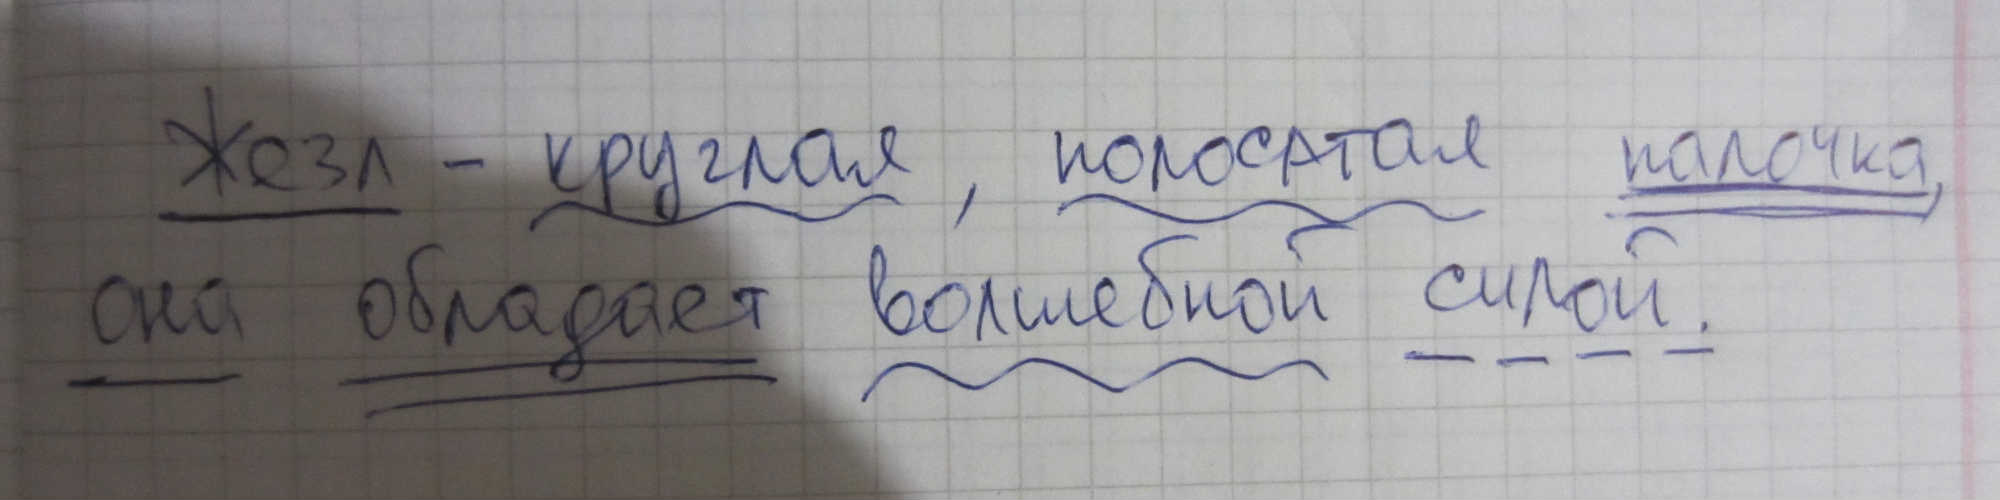 Жезл - круглая, полосатая палочка,
она обладает волшебной силой.